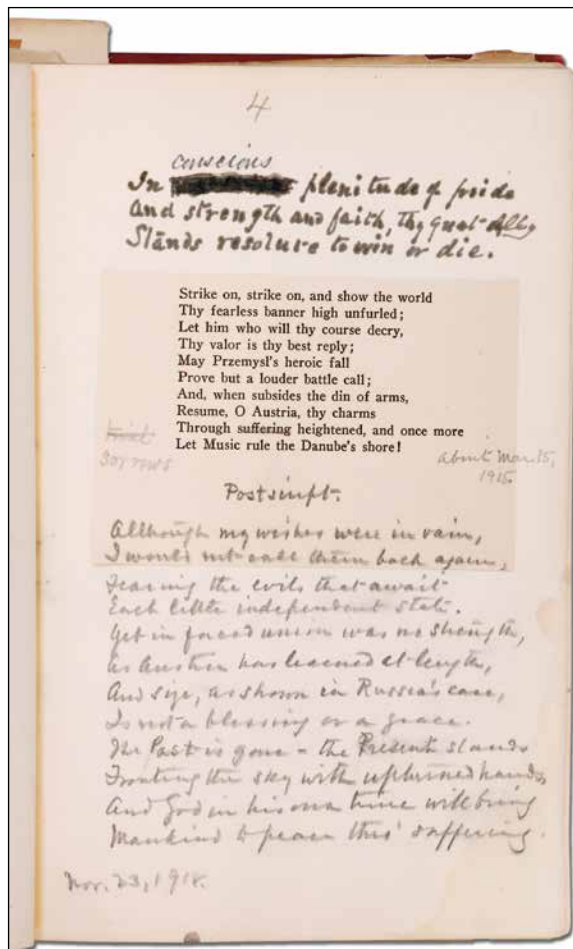 4
conscious
In plenitude of pride
And strength and faith, thy great Ally
Stands resolute to win or die.
Strike on, strike on, and show the world
Thy fearless banner high unfurled;
Let him who will thy course decry,
Thy valor is thy best reply;
May Przemysl's heroic fall
Prove but a louder battle call;
And, when subsides the din of arms,
Resume, O Austria, thy charms
Through suffering heightened, and once more
Let Music rule the Danube's shore!
trial
sorrows
about Mar. 15,
1915.
Postscript.
Although my wishes were in vain,
I would not call them back again,
Fearing the evils that await
Each little independent state.
Yet in forced union was no strength,
As Austria has learned at length,
And size, as shown in Russia's case,
Is not a blessing or a grace.
The Past is gone – the Present stands
Fronting the sky with upturned hands,
And God in his own time will bring
Mankind to peace thro' suffering.
Nov. 23, 1918.